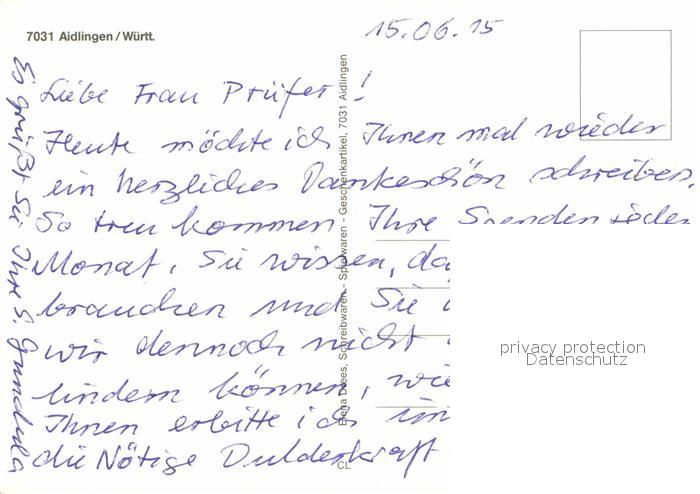 7031 Aidlingen / Württ.
15.06.15
Liebe Frau Prüfer!
Heute möchte ich Ihnen mal wieder
ein herzliches Dankeschön schreiben.
So treu kommen Ihre Spenden jeden
Monat. Sie wissen, da
brauchen und Sie
wir dennoch nicht
lindern können, wie
Ihnen erbitte ich im
die Nötige Dulderkraft
Es grüßt Sie Ihre S. Gundula
Elena Drees, Schreibwaren - Spielwaren - Geschenkartikel, 7031 Aidlingen
CL
privacy protection
Datenschutz